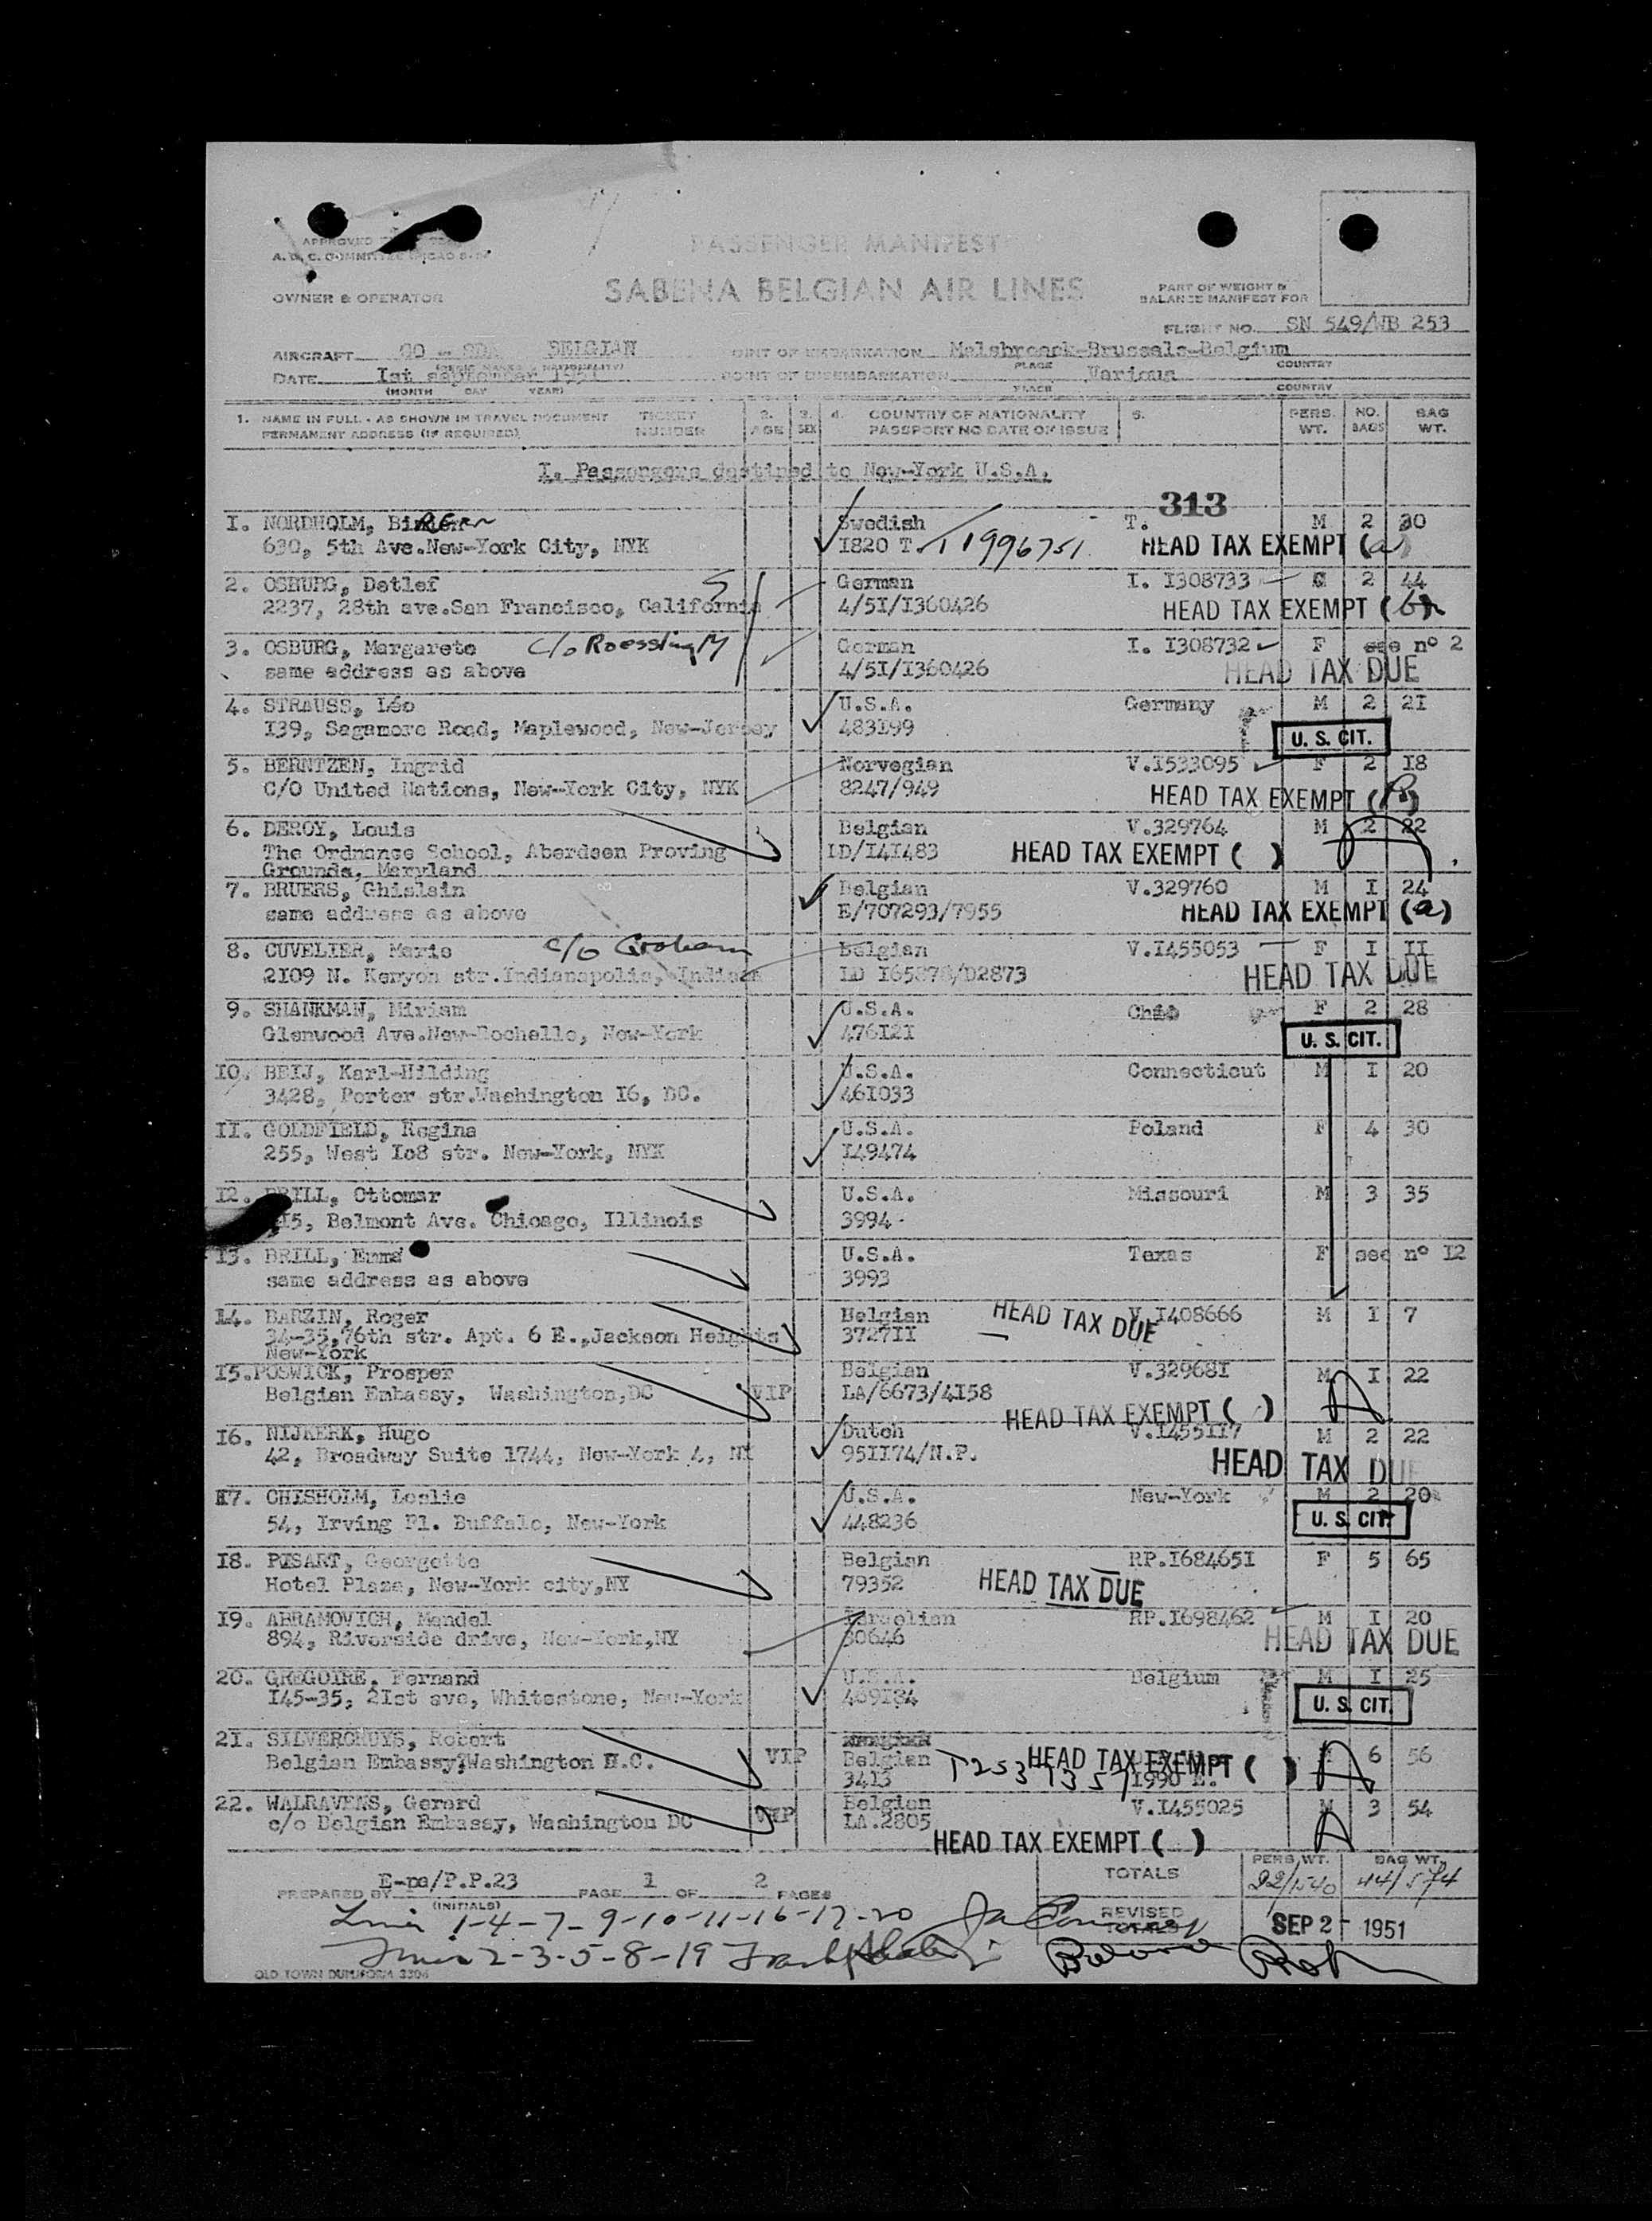 PASSENGER MANIFEST
APPROVED
A. O. C. COMMITTEE
OWNER & OPERATOR
SABENA BELGIAN AIR LINES
PART OF WEIGHT &
BALANCE MANIFEST FOR
FLIGHT NO. SN 549/WB 253
AIRCRAFT OO - BELGIAN POINT OF EMBARKATION Melsbroeck-Brussels-Belgium
PLACE COUNTRY
DATE Ist september 1951 POINT OF DISEMBARKATION Various
(MONTH DAY YEAR) PLACE COUNTRY
1. NAME IN FULL - AS SHOWN IN TRAVEL DOCUMENT TICKET 2. 3. 4. COUNTRY OF NATIONALITY 5. PERS. NO. BAG
PERMANENT ADDRESS (IF REQUIRED) NUMBER AGE SEX PASSPORT NO DATE OF ISSUE WT. BAGS WT.
I. Passengers destined to New-York U.S.A.
313
I. NORDHOLM, Swedish T. M 2 20
630, 5th Ave.New-York City, NYK I820 T. T 1996751 HEAD TAX EXEMPT (a)
2. OSBURG, Detlef German I. I308733 2 44
2237, 28th ave.San Francisco, California 4/5I/I360426 HEAD TAX EXEMPT (b)
3. OSBURG, Margarete c/o Roessling M German I. I308732 F see nº 2
same address as above 4/5I/I360426 HEAD TAX DUE
4. STRAUSS, Léo U.S.A. Germany M 2 2I
I39, Sagamore Road, Maplewood, New-Jersey 483I99 U. S. CIT.
5. BERNTZEN, Ingrid Norvegian V.I533095 F 2 I8
C/O United Nations, New-York City, NYK 8247/949 HEAD TAX EXEMPT
6. DEROY, Louis Belgian V.329764 M 2 22
The Ordnance School, Aberdeen Proving LD/I4I483 HEAD TAX EXEMPT ( )
Grounds, Maryland
7. BRUERS, Ghislain Belgian V.329760 M I 24
same address as above E/707293/7955 HEAD TAX EXEMPT (a)
8. CUVELIER, Marie c/o Graham Belgian V.I455053 F I II
2I09 N. Kenyon str.Indianapolis, Indiana LD I65878/D2873 HEAD TAX DUE
9. SHANKMAN, Miriam U.S.A. F 2 28
Glenwood Ave.New-Rochelle, New-York 476I2I U. S. CIT.
IO. BEIJ, Karl-Hilding U.S.A. Connecticut M I 20
3428, Porter str.Washington I6, DC. 46I033
II. GOLDFIELD, Regina U.S.A. Poland F 4 30
255, West Io8 str. New-York, NYK I49474
I2. BRILL, Ottomar U.S.A. Missouri M 3 35
I5, Belmont Ave. Chicago, Illinois 3994
I3. BRILL, Emma U.S.A. Texas F see nº I2
same address as above 3993
I4. BARZIN, Roger Belgian HEAD TAX DUE V.I408666 M I 7
34-35,76th str. Apt. 6 E.,Jackson Heights 3727II
New-York
I5.POSWICK, Prosper Belgian V.32968I M I 22
Belgian Embassy, Washington,DC VIP LA/6673/4I58
HEAD TAX EXEMPT ( )
I6. NIJKERK, Hugo Dutch V.I455II7 M 2 22
42, Broadway Suite 1744, New-York 4, NY 95II74/N.P. HEAD TAX DUE
I7. CHISHOLM, Leslie U.S.A. New-York M 2 20
54, Irving Pl. Buffalo, New-York 448236 U. S. CIT.
I8. PISART, Georgette Belgian RP.I68465I F 5 65
Hotel Plaza, New-York city,NY 79352 HEAD TAX DUE
I9. ABRAMOVICH, Mendel Israelian RP.I698462 M I 20
894, Riverside drive, New-York,NY 30646 HEAD TAX DUE
20. GREGOIRE, Fernand U.S.A. Belgium M I 25
I45-35, 2Ist ave, Whitestone, New-York 469I84 U. S. CIT.
2I. SILVERCRUYS, Robert VIP Belgian HEAD TAX EXEMPT ( ) 6 56
Belgian Embassy,Washington D.C. 3413
22. WALRAVENS, Gerard VIP Belgian V.I455025 M 3 54
c/o Belgian Embassy, Washington DC LA.2805
HEAD TAX EXEMPT ( )
PREPARED BY E-pa/P.P.23 PAGE 1 OF 2 PAGES TOTALS PERS WT. 22/1540 BAG WT. 44/574
(INITIALS)
1-4-7-9-10-11-16-17-20 REVISED TOTALS SEP 2 - 1951
2-3-5-8-19
OLD TOWN DUPLIFORM 3304